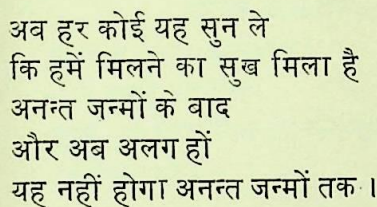 अब हर कोई यह सुन ले
कि हमें मिलने का सुख मिला है
अनन्त जन्मों के बाद
और अब अलग हों
यह नहीं होगा अनन्त जन्मों तक ।